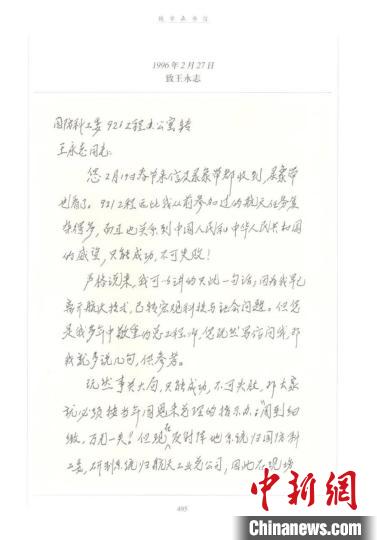 钱学森书信
1996年2月27日
致王永志
国防科工委921工程办公室转
王永志同志:
您2月19日春节来信及录象带都收到,录象带
也看了。921工程远比我从前参加过的航天任务复
杂得多,而且也关系到中国人民和中华人民共和国
的威望,只能成功,不可失败!
严格说来,我可以讲的只此一句话;因为我早已
离开航天技术,已转宏观科技与社会问题。但您
是我多年中敬重的总工程师,您既然写信问我,那
我就多说几句,供参考。
既然事关大局,只能成功,不可失败,那大家
就必须按当年周恩来总理的指示办:“周到细
致,万无一失”!但现在发射阵地系统归国防科
工委,研制系统归航天工业总公司,因此在现场
495
中新网
www.chinanews.com